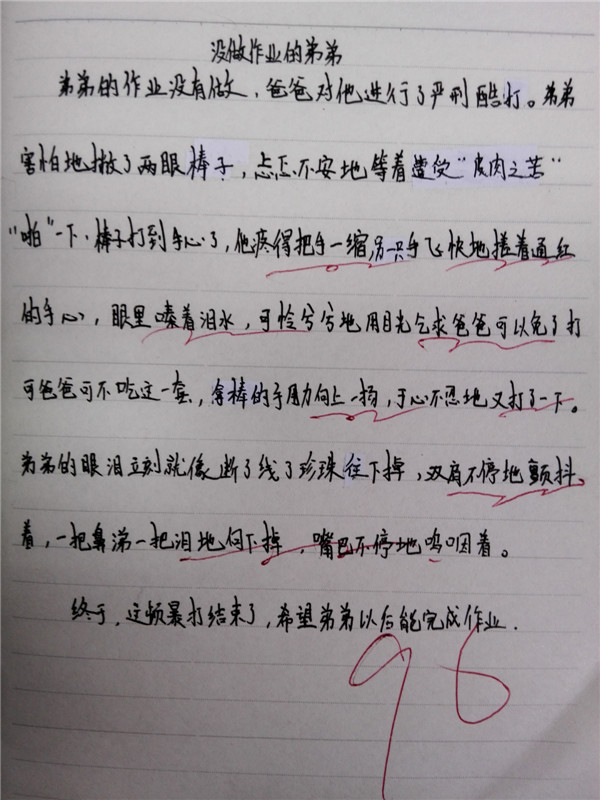 没做作业的弟弟
弟弟的作业没有做，爸爸对他进行了严刑酷打。弟弟
害怕地瞅了两眼棒子，忐忑不安地等着遭受“皮肉之苦”
“啪”一下，棒子打到手心了，他疼得把手一缩，另一只手飞快地搓着通红
的手心，眼里嗪着泪水，可怜兮兮地用目光乞求爸爸可以免了打
可爸爸可不吃这一套，拿棒的手用力向上一扬，于心不忍地又打了一下。
弟弟的眼泪立刻就像断了线了珍珠往下掉，双肩不停地颤抖
着，一把鼻涕一把泪地向下掉，嘴巴不停地呜咽着。
终于，这顿暴打结束了，希望弟弟以后能完成作业.
96